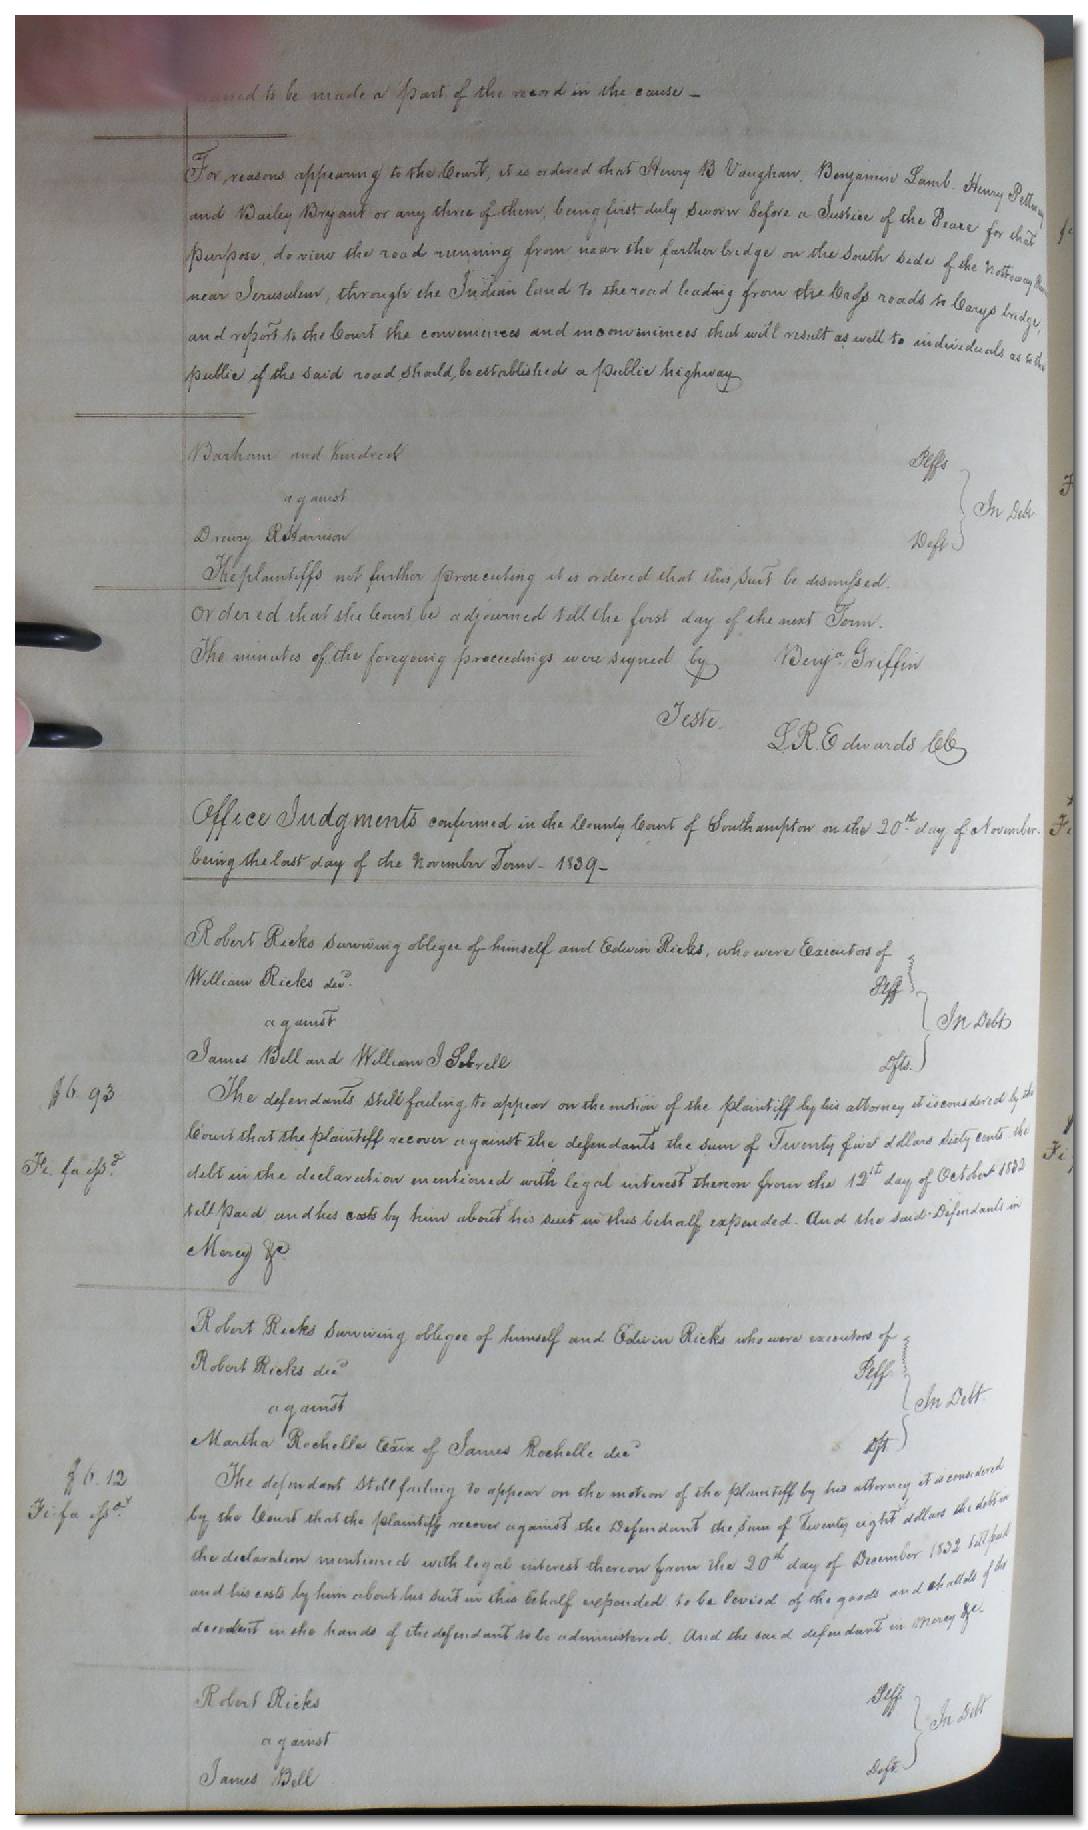 to be made a part of the record in the cause –
For reasons appearing to the Court, it is ordered that Henry B Vaughan, Benjamin Lamb. Henry
and Bailey Bryant or any three of them, being first duly sworn before a Justice of the Peace for that
purpose, do view the road running from near the farther bridge on the South side of the Nottoway
near Jerusalem, through the Indian land to the road leading from the roads to Carys bridge,
and report to the Court the conveniences and inconveniences that will result as well to individuals as to the
public if the said road should be established a public highway
Barham and Kindred
Plffs
against
In Debt
Drewry R Harrison
Deft
The plaintiffs not further prosecuting it is ordered that this suit be dismissed.
Ordered that the Court be adjourned till the first day of the next Term.
The minutes of the foregoing proceedings were signed by Benja. Griffin
Teste.
L.R. Edwards CC
Office Judgments confirmed in the County Court of Southampton on the 20th day of November.
being the last day of the November Term – 1839 –
Robert Ricks surviving obligee of himself and Edwin Ricks, who were Executors of
William Ricks decd.
Plff
against
In Debt
James Bell and William J Sebrell
Dfts.
$6.93
The defendants still failing to appear on the motion of the plaintiff by his attorney it is considered by the
Court that the plaintiff recover against the defendants the sum of Twenty five dollars sixty cents the
Fi. fa issd.
debt in the declaration mentioned with legal interest thereon from the day of October 1832
till paid and his costs by him about his suit in this behalf expended. And the said Defendants in
Mercy &c.
Robert Ricks surviving obligee of himself and Edwin Ricks who were executors of
Robert Ricks decd
Plff
against
In Debt
Martha Rochelle Exix of James Rochelle decd
Dft.
$6.12
The defendant still failing to appear on the motion of the plaintiff by his attorney it is considered
Fi. fa issd.
by the Court that the plaintiff recover against the Defendant the sum of Twenty eight dollars the debt in
the declaration mentioned with legal interest thereon from the 20th day of December 1832 till paid
and his costs by him about his suit in this behalf expended to be levied of the goods and chattels of the
decedent in the hands of the defendant to be administered. And the said defendant in Mercy &c.
Robert Ricks
Plff
against
In Debt
James Bell
Deft.